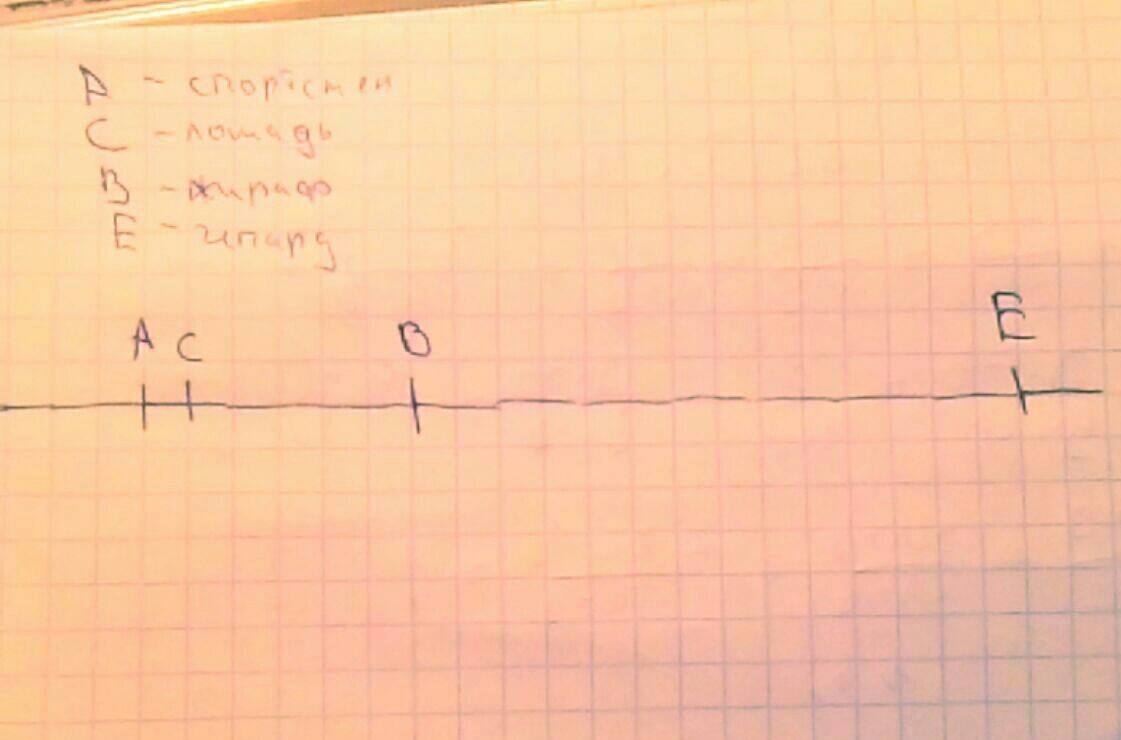 А - спортсмен
С - лошадь
В - жираф
Е - гепард
А С В Е